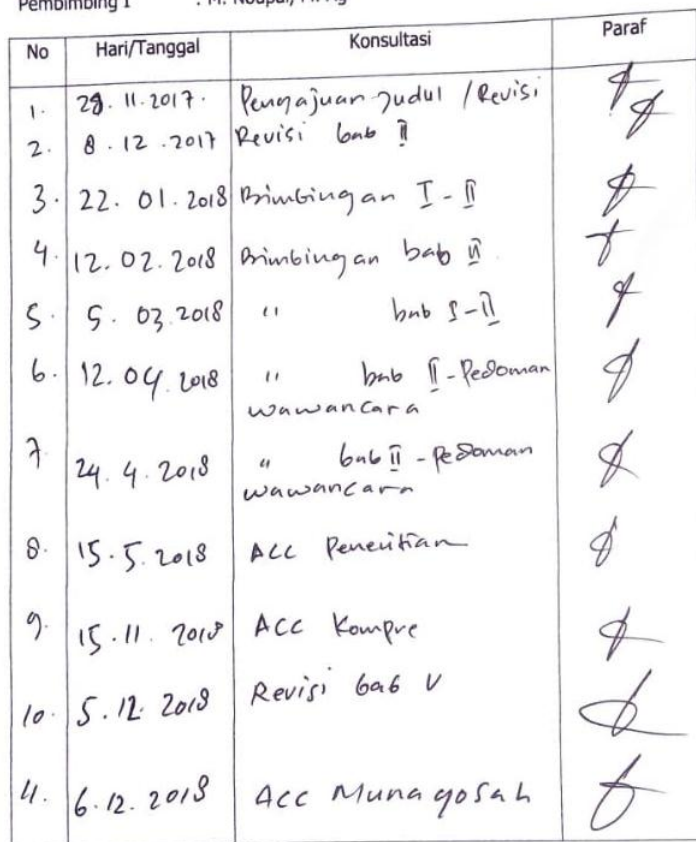 Pembimbing I : M. Noupal, M. Ag
No Hari/Tanggal Konsultasi Paraf
1. 29. 11. 2017. Pengajuan Judul / Revisi
2. 8. 12. 2017 Revisi bab II
3. 22. 01. 2018 Bimbingan I - II
4. 12. 02. 2018 Bimbingan bab II
5. 5. 03. 2018 " bab I - II
6. 12. 04. 2018 " bab II - Pedoman
wawancara
7 24. 4. 2018 " bab II - Pedoman
wawancara
8. 15. 5. 2018 ACC Penelitian
9. 15. 11. 2018 ACC Kompre
10. 5. 12. 2018 Revisi bab V
11. 6. 12. 2018 Acc Munaqosah